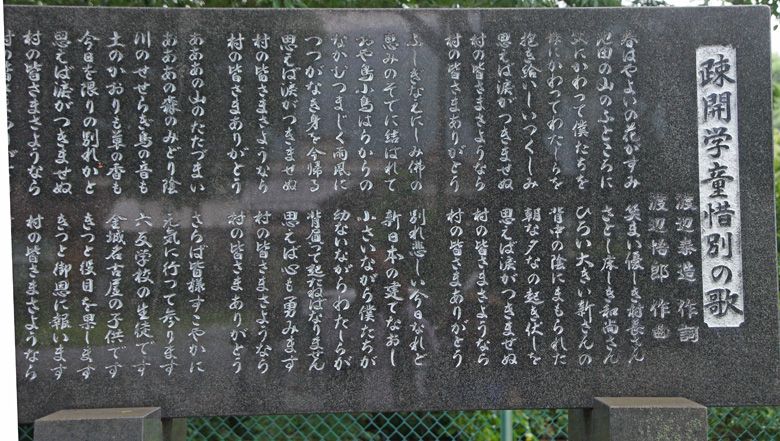 疎開学童惜別の歌
渡辺泰造 作詞
渡辺悟郎 作曲
春はやよいの花がすみ
池田の山のふところに
父にかわって僕たちを
母にかわってわたしらを
抱き給いしいつくしみ
思えば涙がつきませぬ
村の皆さまさようなら
村の皆さまありがとう
笑まい優しき村長さん
さとし床しき和尚さん
ひろい大きい新さんの
背中の陰にまもられた
朝な夕なの起き伏しを
思えば涙がつきませぬ
村の皆さまさようなら
村の皆さまありがとう
ふしぎなえにしみ佛の
恵みのそでに結ばれて
おや鳥小鳥はらからの
なかむつまじく雨風に
つつがなき身を今帰る
思えば涙がつきませぬ
村の皆さまさようなら
村の皆さまありがとう
別れ悲しい今日なれど
新日本の建てなおし
小さいながら僕たちが
幼ないながらわたしらが
背負って起たねばなりません
思えば心も勇みます
村の皆さまさようなら
村の皆さまありがとう
ああああの山のたたづまい
ああああの森のみどり陰
川のせせらぎ鳥の音も
土のかおりも草の香も
今日を限りの別れかと
思えば涙がつきませぬ
村の皆さまさようなら
さらば皆様すこやかに
元気に行って参ります
六反学校の生徒です
金城名古屋の子供です
きっと役目を果します
きっと御恩に報います
村の皆さまさようなら